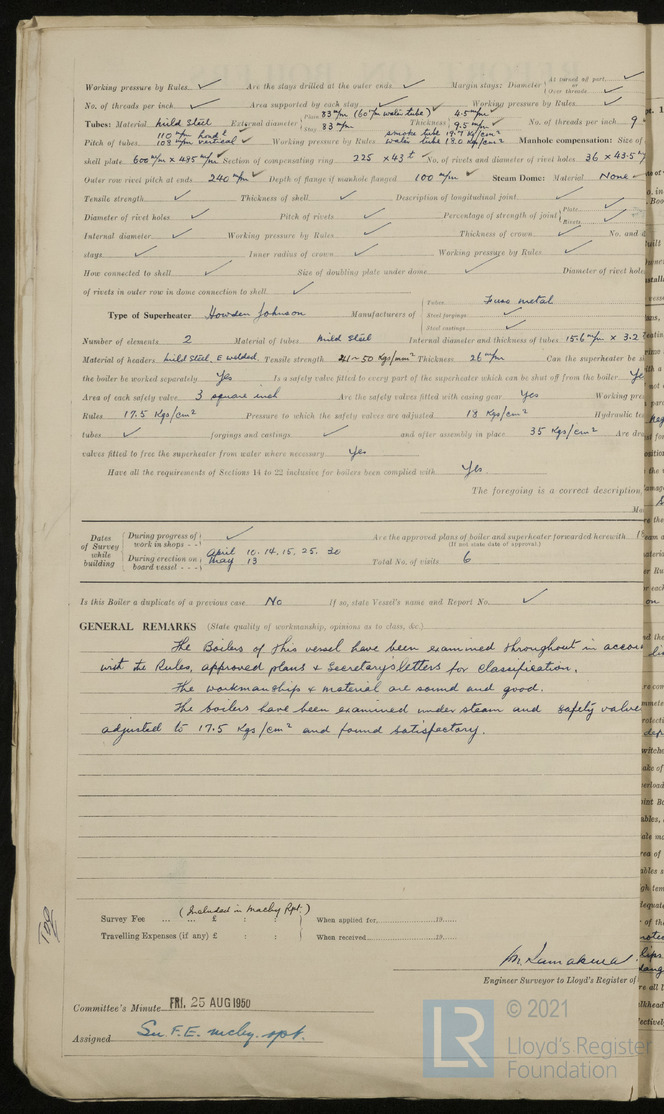 Working pressure by Rules ✓ Are the stays drilled at the outer ends ✓ Margin stays: Diameter { At turned off part. ✓ or Over threads ✓
No. of threads per inch ✓ Area supported by each stay ✓ Working pressure by Rules ✓
Tubes: Material Mild Steel External diameter { Plain 83 m/m (60 m/m water tube) ✓ Stay 83 m/m Thickness { 4.5 m/m ✓ 9.5 m/m ✓ No. of threads per inch 9
Pitch of tubes 110 m/m horizl 108 m/m vertical ✓ Working pressure by Rules smoke tube 19.7 Kg/cm² water tube 18.0 Kg/cm² Manhole compensation: Size of
shell plate 600 m/m x 495 m/m ✓ Section of compensating ring 225 x 43 t ✓ No. of rivets and diameter of rivet holes 36 x 43.5
Outer row rivet pitch at ends 240 m/m ✓ Depth of flange if manhole flanged 100 m/m ✓ Steam Dome: Material None
Tensile strength ✓ Thickness of shell ✓ Description of longitudinal joint ✓
Diameter of rivet holes ✓ Pitch of rivets ✓ Percentage of strength of joint { Plate ✓ Rivets ✓
Internal diameter ✓ Working pressure by Rules ✓ Thickness of crown ✓ No. and d
stays ✓ Inner radius of crown ✓ Working pressure by Rules ✓
How connected to shell ✓ Size of doubling plate under dome ✓ Diameter of rivet hole
of rivets in outer row in dome connection to shell ✓
Type of Superheater Howden Johnson Manufacturers of { Tubes Fuso metal
Steel forgings ✓
Steel castings ✓
Number of elements 2 Material of tubes Mild Steel Internal diameter and thickness of tubes 15.6 m/m x 3.2
Material of headers Mild Steel, E welded. Tensile strength 41~50 Kgs/mm² Thickness 26 m/m Can the superheater be s
the boiler be worked separately Yes Is a safety valve fitted to every part of the superheater which can be shut off from the boiler Ye
Area of each safety valve 3 square inch Are the safety valves fitted with easing gear Yes Working pres
Rules 17.5 Kgs/cm² Pressure to which the safety valves are adjusted 18 Kgs/cm² Hydraulic te
tubes ✓ forgings and castings ✓ and after assembly in place 35 Kgs/cm² Are dra
valves fitted to free the superheater from water where necessary Yes
Have all the requirements of Sections 14 to 22 inclusive for boilers been complied with Yes
The foregoing is a correct description,
Ma
Dates of Survey while building { During progress of work in shops - - ✓ Are the approved plans of boiler and superheater forwarded herewith
(If not state date of approval.)
During erection on board vessel - - - April 10. 14. 15. 25. 30 May 13 Total No. of visits 6
Is this Boiler a duplicate of a previous case No If so, state Vessel's name and Report No. ✓
GENERAL REMARKS (State quality of workmanship, opinions as to class, &c.)
The Boilers of this vessel have been examined throughout in accor
with the Rules, approved plans & Secretarys letters for classification.
The workmanships & material are sound and good.
The boilers have been examined under steam and safety valve
adjusted to 17.5 Kgs/cm² and found satisfactory.
(Included in Machy Rpt.)
Survey Fee ... ... £ : : When applied for 19
Travelling Expenses (if any) £ : : When received 19
Engineer Surveyor to Lloyd's Register of
Committee's Minute FRI. 25 AUG 1950
Assigned See F.E. mchy. rpt.
LR © 2021
Lloyd's Register
Foundation